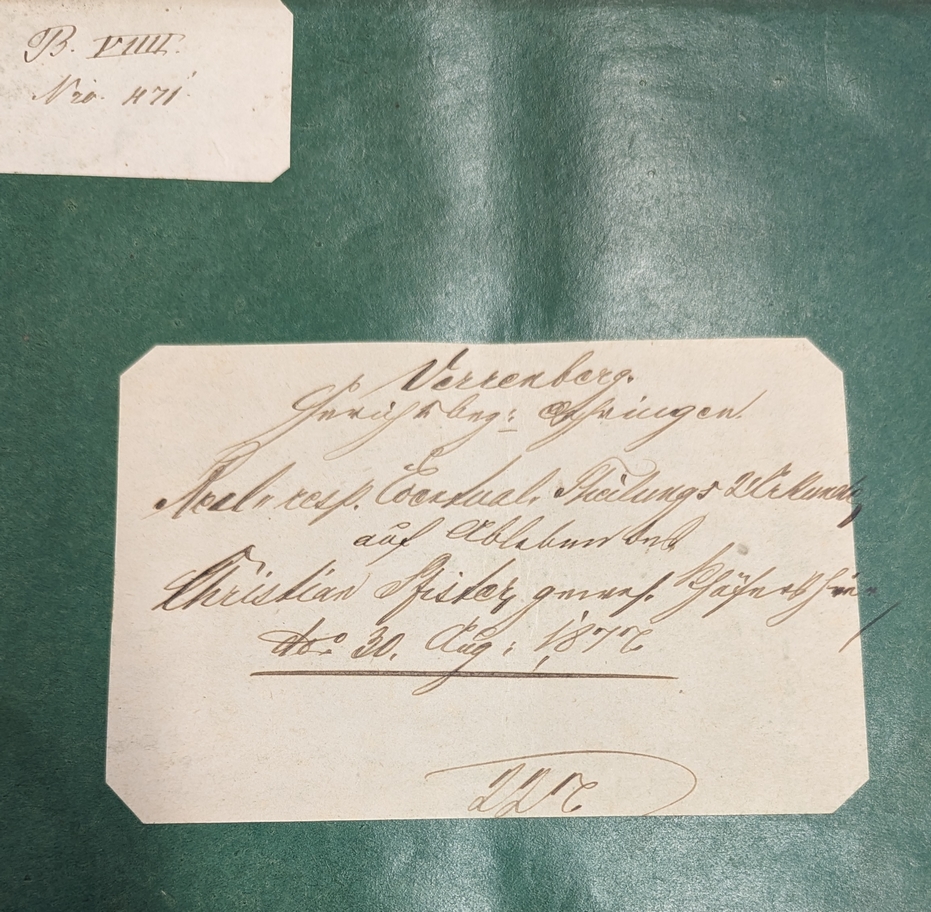 B. VIIII.
Nro. 471
Verrenberg.
Gerichtsbez: Oehringen.
Real- resp. Eventual- Theilungs Urkunde,
auf Ableben des
Christian Pfister, gewes.
dto 30. Aug: 1877
227